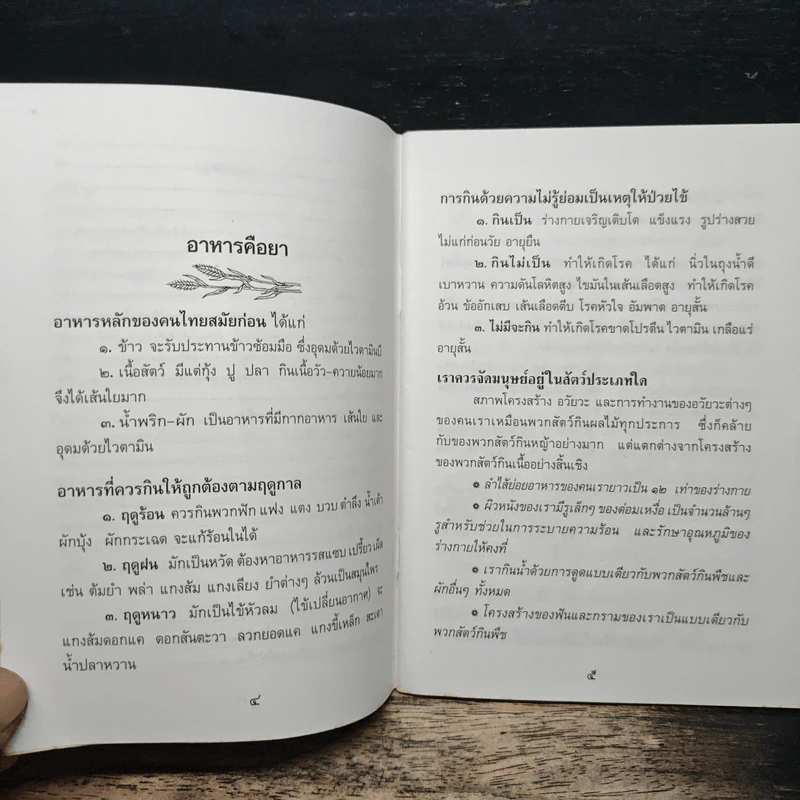 อาหารคือยา
อาหารหลักของคนไทยสมัยก่อน ได้แก่
๑. ข้าว จะรับประทานข้าวซ้อมมือ ซึ่งอุดมด้วยไวตามินบี
๒. เนื้อสัตว์ มีแต่กุ้ง ปู ปลา กินเนื้อวัว-ควายน้อยมาก
จึงได้เส้นใยมาก
๓. น้ำพริก-ผัก เป็นอาหารที่มีกากอาหาร เส้นใย และ
อุดมด้วยไวตามิน
อาหารที่ควรกินให้ถูกต้องตามฤดูกาล
๑. ฤดูร้อน ควรกินพวกฟัก แฟง แตง บวบ ตำลึง น้ำเต้า
ผักบุ้ง ผักกระเฉด จะแก้ร้อนในได้
๒. ฤดูฝน มักเป็นหวัด ต้องหาอาหารรสแซบ เปรี้ยว เผ็ด
เช่น ต้มยำ พล่า แกงส้ม แกงเลียง ยำต่างๆ ล้วนเป็นสมุนไพร
๓. ฤดูหนาว มักเป็นไข้หัวลม (ไข้เปลี่ยนอากาศ) จะ
แกงส้มดอกแค ดอกสันตะวา ลวกยอดแค แกงขี้เหล็ก สะเดา
น้ำปลาหวาน
๔
การกินด้วยความไม่รู้ย่อมเป็นเหตุให้ป่วยไข้
๑. กินเป็น ร่างกายเจริญเติบโต แข็งแรง รูปร่างสวย
ไม่แก่ก่อนวัย อายุยืน
๒. กินไม่เป็น ทำให้เกิดโรค ได้แก่ นิ่วในถุงน้ำดี
เบาหวาน ความดันโลหิตสูง ไขมันในเส้นเลือดสูง ทำให้เกิดโรค
อ้วน ข้ออักเสบ เส้นเลือดตีบ โรคหัวใจ อัมพาต อายุสั้น
๓. ไม่มีจะกิน ทำให้เกิดโรคขาดโปรตีน ไวตามิน เกลือแร่
อายุสั้น
เราควรจัดมนุษย์อยู่ในสัตว์ประเภทใด
สภาพโครงสร้าง อวัยวะ และการทำงานของอวัยวะต่างๆ
ของคนเราเหมือนพวกสัตว์กินผลไม้ทุกประการ ซึ่งก็คล้าย
กับของพวกสัตว์กินหญ้าอย่างมาก แต่แตกต่างจากโครงสร้าง
ของพวกสัตว์กินเนื้ออย่างสิ้นเชิง
๏ ลำไส้ย่อยอาหารของคนเรายาวเป็น ๑๒ เท่าของร่างกาย
๏ ผิวหนังของเรามีรูเล็กๆ ของต่อมเหงื่อ เป็นจำนวนล้านๆ
รูสำหรับช่วยในการระบายความร้อน และรักษาอุณหภูมิของ
ร่างกายให้คงที่
๏ เรากินน้ำด้วยการดูดแบบเดียวกับพวกสัตว์กินพืชและ
ผักอื่นๆ ทั้งหมด
๏ โครงสร้างของฟันและกรามของเราเป็นแบบเดียวกับ
พวกสัตว์กินพืช
๕